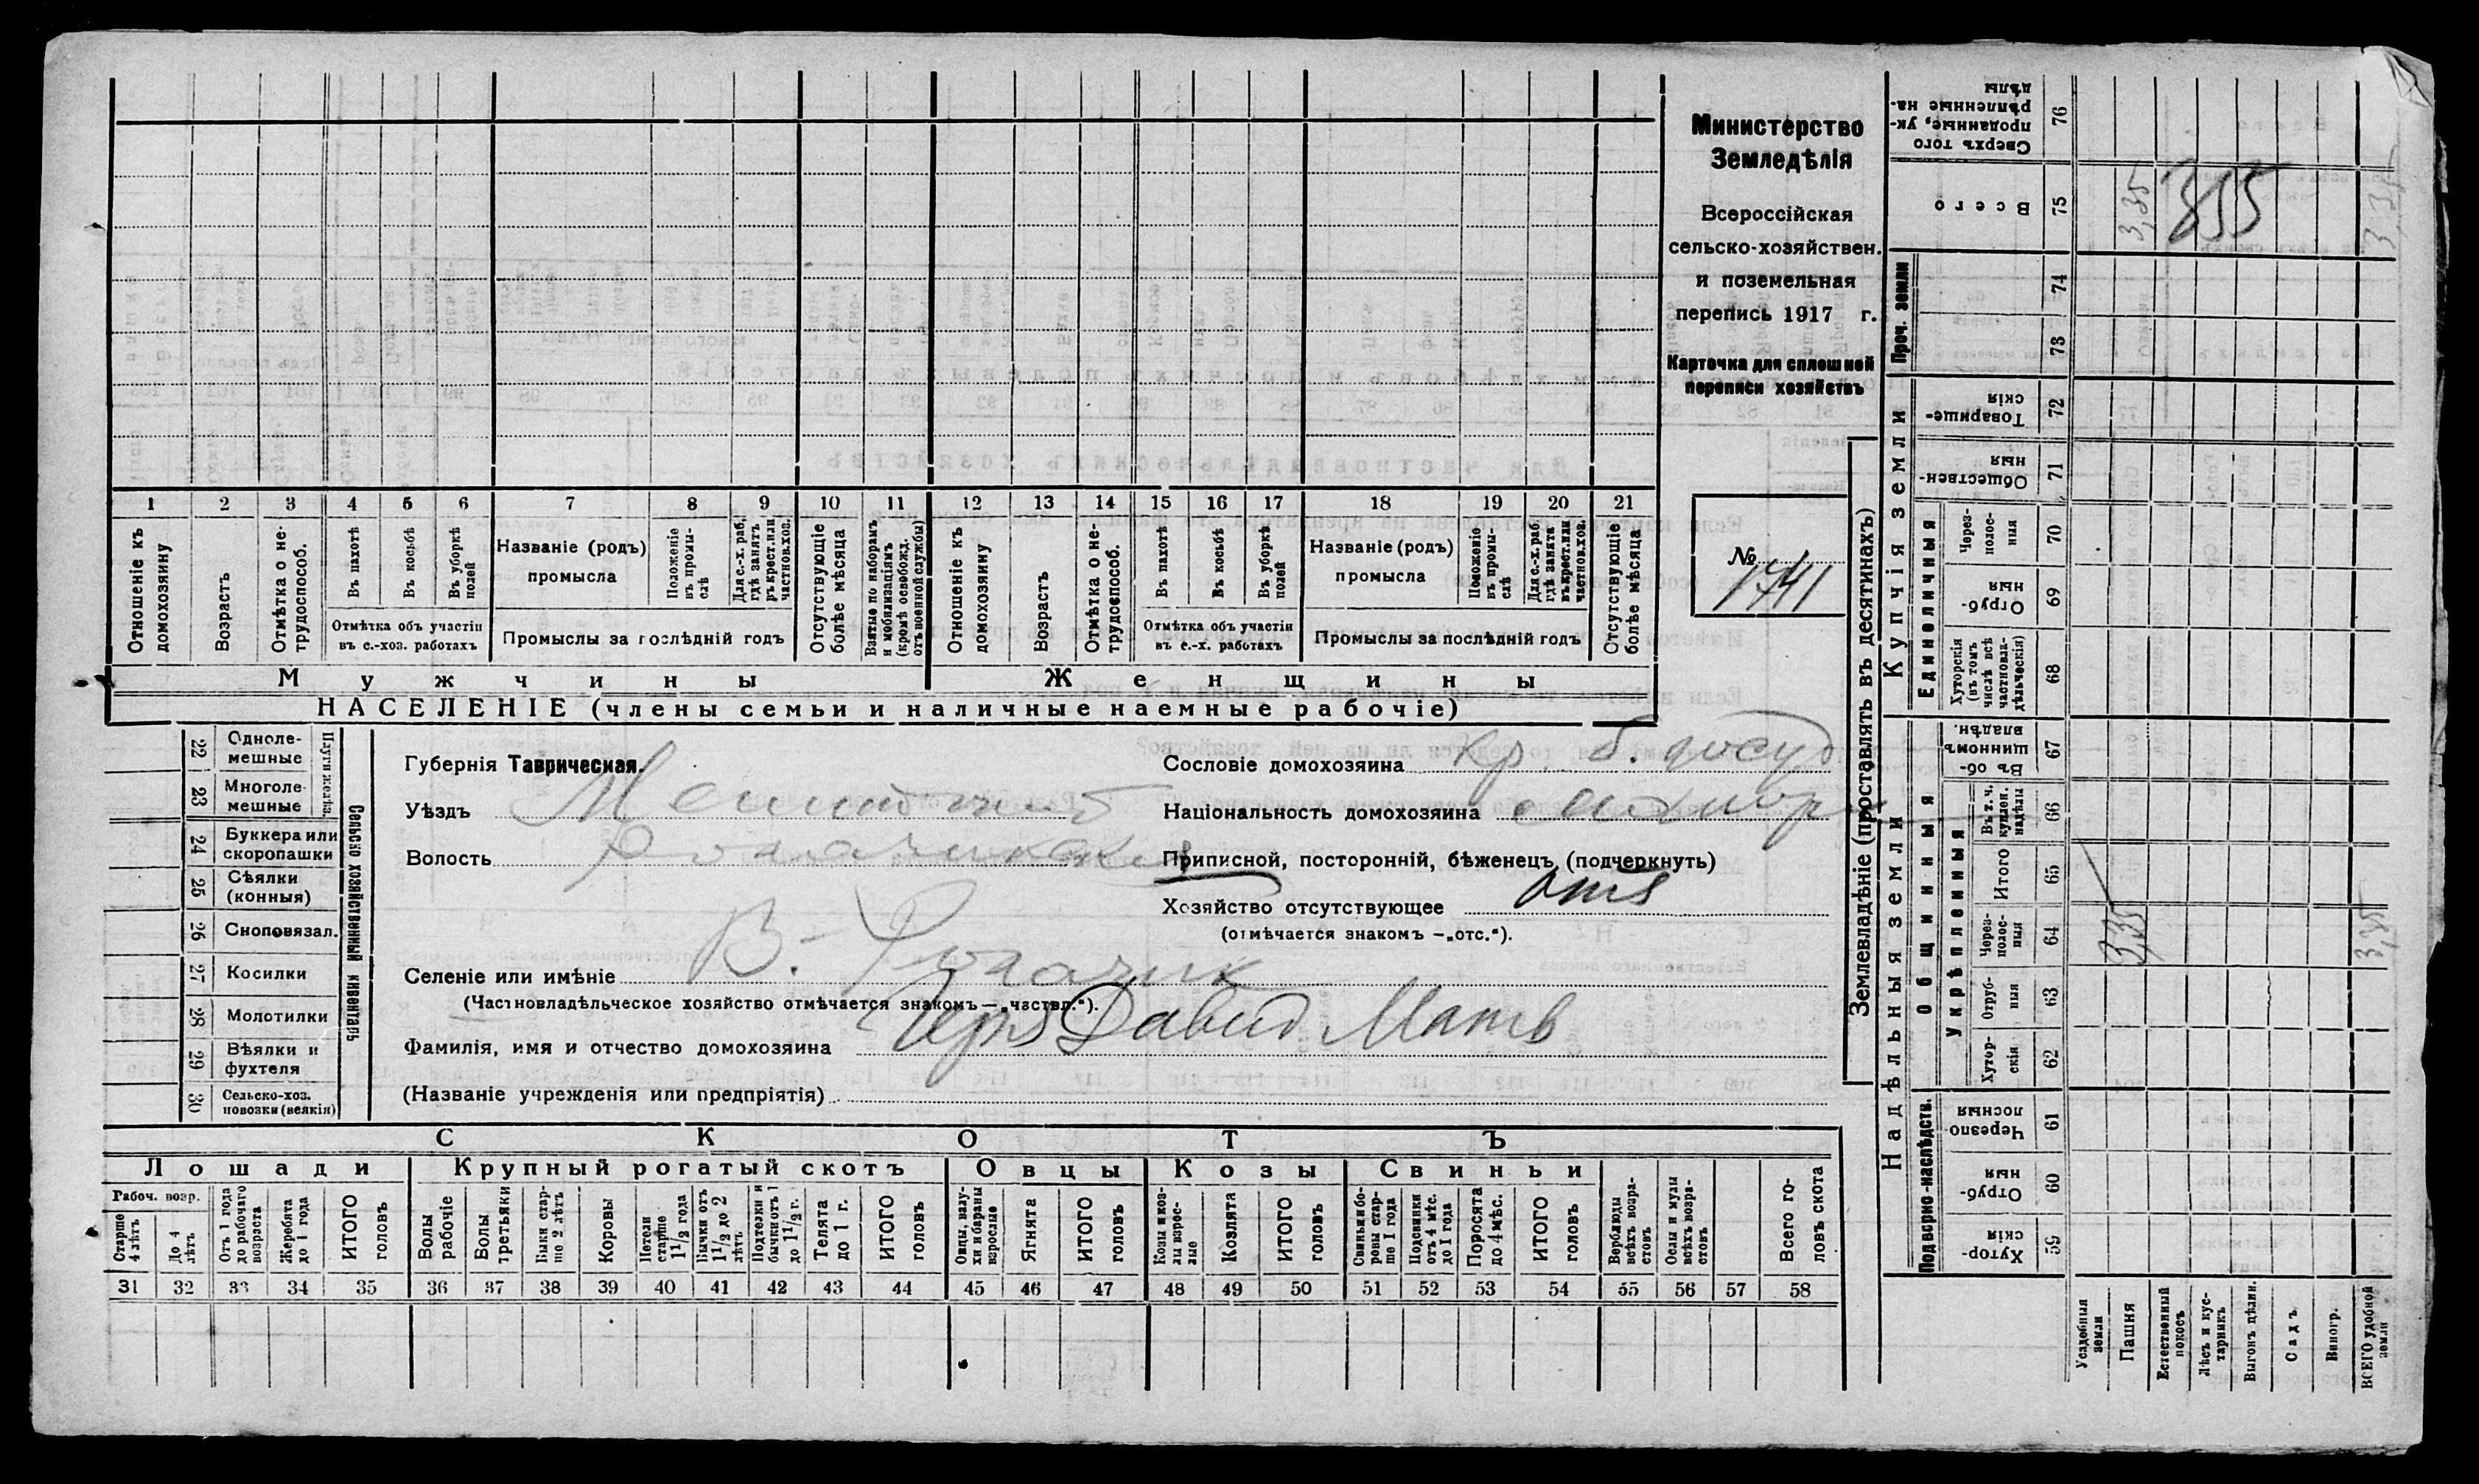 Министерство
Земледѣлія
Всероссійская
сельско-хозяйствен.
и поземельная
перепись 1917 г.
Карточка для сплошной
переписи хозяйствъ
№
1741
1 2 3 4 5 6 7 8 9 10 11 12 13 14 15 16 17 18 19 20 21
Отношеніе къ домохозяину
Возрастъ
Отмѣтка о не-трудоспособ.
Въ пахотѣ
Въ косьбѣ
Въ уборкѣ полей
Отмѣтка объ участіи въ с.-хоз. работахъ
Названіе (родъ) промысла
Положеніе въ промы-слѣ
Для с.-х. раб. гдѣ занятъ въ крест. или частнов. хоз.
Промыслы за послѣдній годъ
Отсутствующіе болѣе мѣсяца
Взятые по наборамъ и мобилизаціямъ (кромѣ освобожд. отъ военной службы)
Отношеніе къ домохозяину
Возрастъ
Отмѣтка о не-трудоспособ.
Въ пахотѣ
Въ косьбѣ
Въ уборкѣ полей
Отмѣтка объ участіи въ с.-х. работахъ
Названіе (родъ) промысла
Положеніе въ промы-слѣ
Для с.-х. раб. гдѣ занята въ крест. или частнов. хоз.
Промыслы за послѣдній годъ
Отсутствующіе болѣе мѣсяца
Мужчины Женщины
НАСЕЛЕНІЕ (члены семьи и наличные наемные рабочіе)
Сельско хозяйственный инвентарь
22 Одноле-мешные
23 Многоле-мешные
24 Буккера или скоропашки
25 Сѣялки (конныя)
26 Сноповязал.
27 Косилки
28 Молотилки
29 Вѣялки и фухтеля
30 Сельско-хоз. повозки (всякія)
Губернія Таврическая.
Уѣздъ
Волость Рогачикская
Селеніе или имѣніе В. Рогачик
(Частновладѣльческое хозяйство отмѣчается знакомъ — „частвл.“).
Фамилія, имя и отчество домохозяина Давид Матв
(Названіе учрежденія или предпріятія)
Сословіе домохозяина кр. б. госуд
Національность домохозяина
Приписной, посторонній, бѣженецъ (подчеркнуть)
Хозяйство отсутствующее отс
(отмѣчается знакомъ —„отс.“).
СКОТЪ
Лошади Крупный рогатый скотъ Овцы Козы Свиньи
Рабоч. возр.
Старше 4 лѣтъ
До 4 лѣтъ
Отъ 1 года до рабочаго возраста
Жеребята до 1 года
ИТОГО головъ
Волы рабочіе
Волы третьяки
Быки стар-ше 2 лѣтъ
Коровы
Нетели старше 1 1/2 года
Бычки отъ 1 1/2 до 2 лѣтъ
Подтелки и бычки отъ 1 до 1 1/2 г.
Телята до 1 г.
ИТОГО головъ
Овцы, валу-хи и бараны взрослые
Ягнята
ИТОГО головъ
Козы и коз-лы взрос-лые
Козлята
ИТОГО головъ
Свиньи и бо-ровы стар-ше 1 года
Подсвинки отъ 4 мѣс. до 1 года
Поросята до 4 мѣс.
ИТОГО головъ
Верблюды всѣхъ возра-стовъ
Ослы и мулы всѣхъ возра-стовъ
Всего го-ловъ скота
31 32 33 34 35 36 37 38 39 40 41 42 43 44 45 46 47 48 49 50 51 52 53 54 55 56 57 58
Землевладѣніе (проставлять въ десятинахъ)
Надѣльныя земли Купчія земли Проч. земли
Подворно-наслѣдств.
Общинныя
Укрѣпленныя
Единоличныя
76 Сверхъ того проданные, ук-рѣпленные на-дѣлы
75 Всего 3,35 335 3,35
74
73
72 Товарище-скія
71 Обществен-ныя
70 Через-полос-ныя
69 Отруб-ныя
68 Хуторскія (въ томъ числѣ всѣ частновла-дѣльческія)
67 Въ об-щинномъ владѣн.
66 Въ т. ч. куплен. надѣлы
65 Итого
64 Через-полос-ныя 3,35 3,35
63 Отруб-ныя
62 Хутор-скія
61 Черезпо-лосныя
60 Отруб-ныя
59 Хутор-скія
Усадебныя земли
Пашня
Естественный покосъ
Лѣсъ и кус-тарникъ
Выгонъ цѣлин.
Садъ
Виногр.
ВСЕГО удобной земли